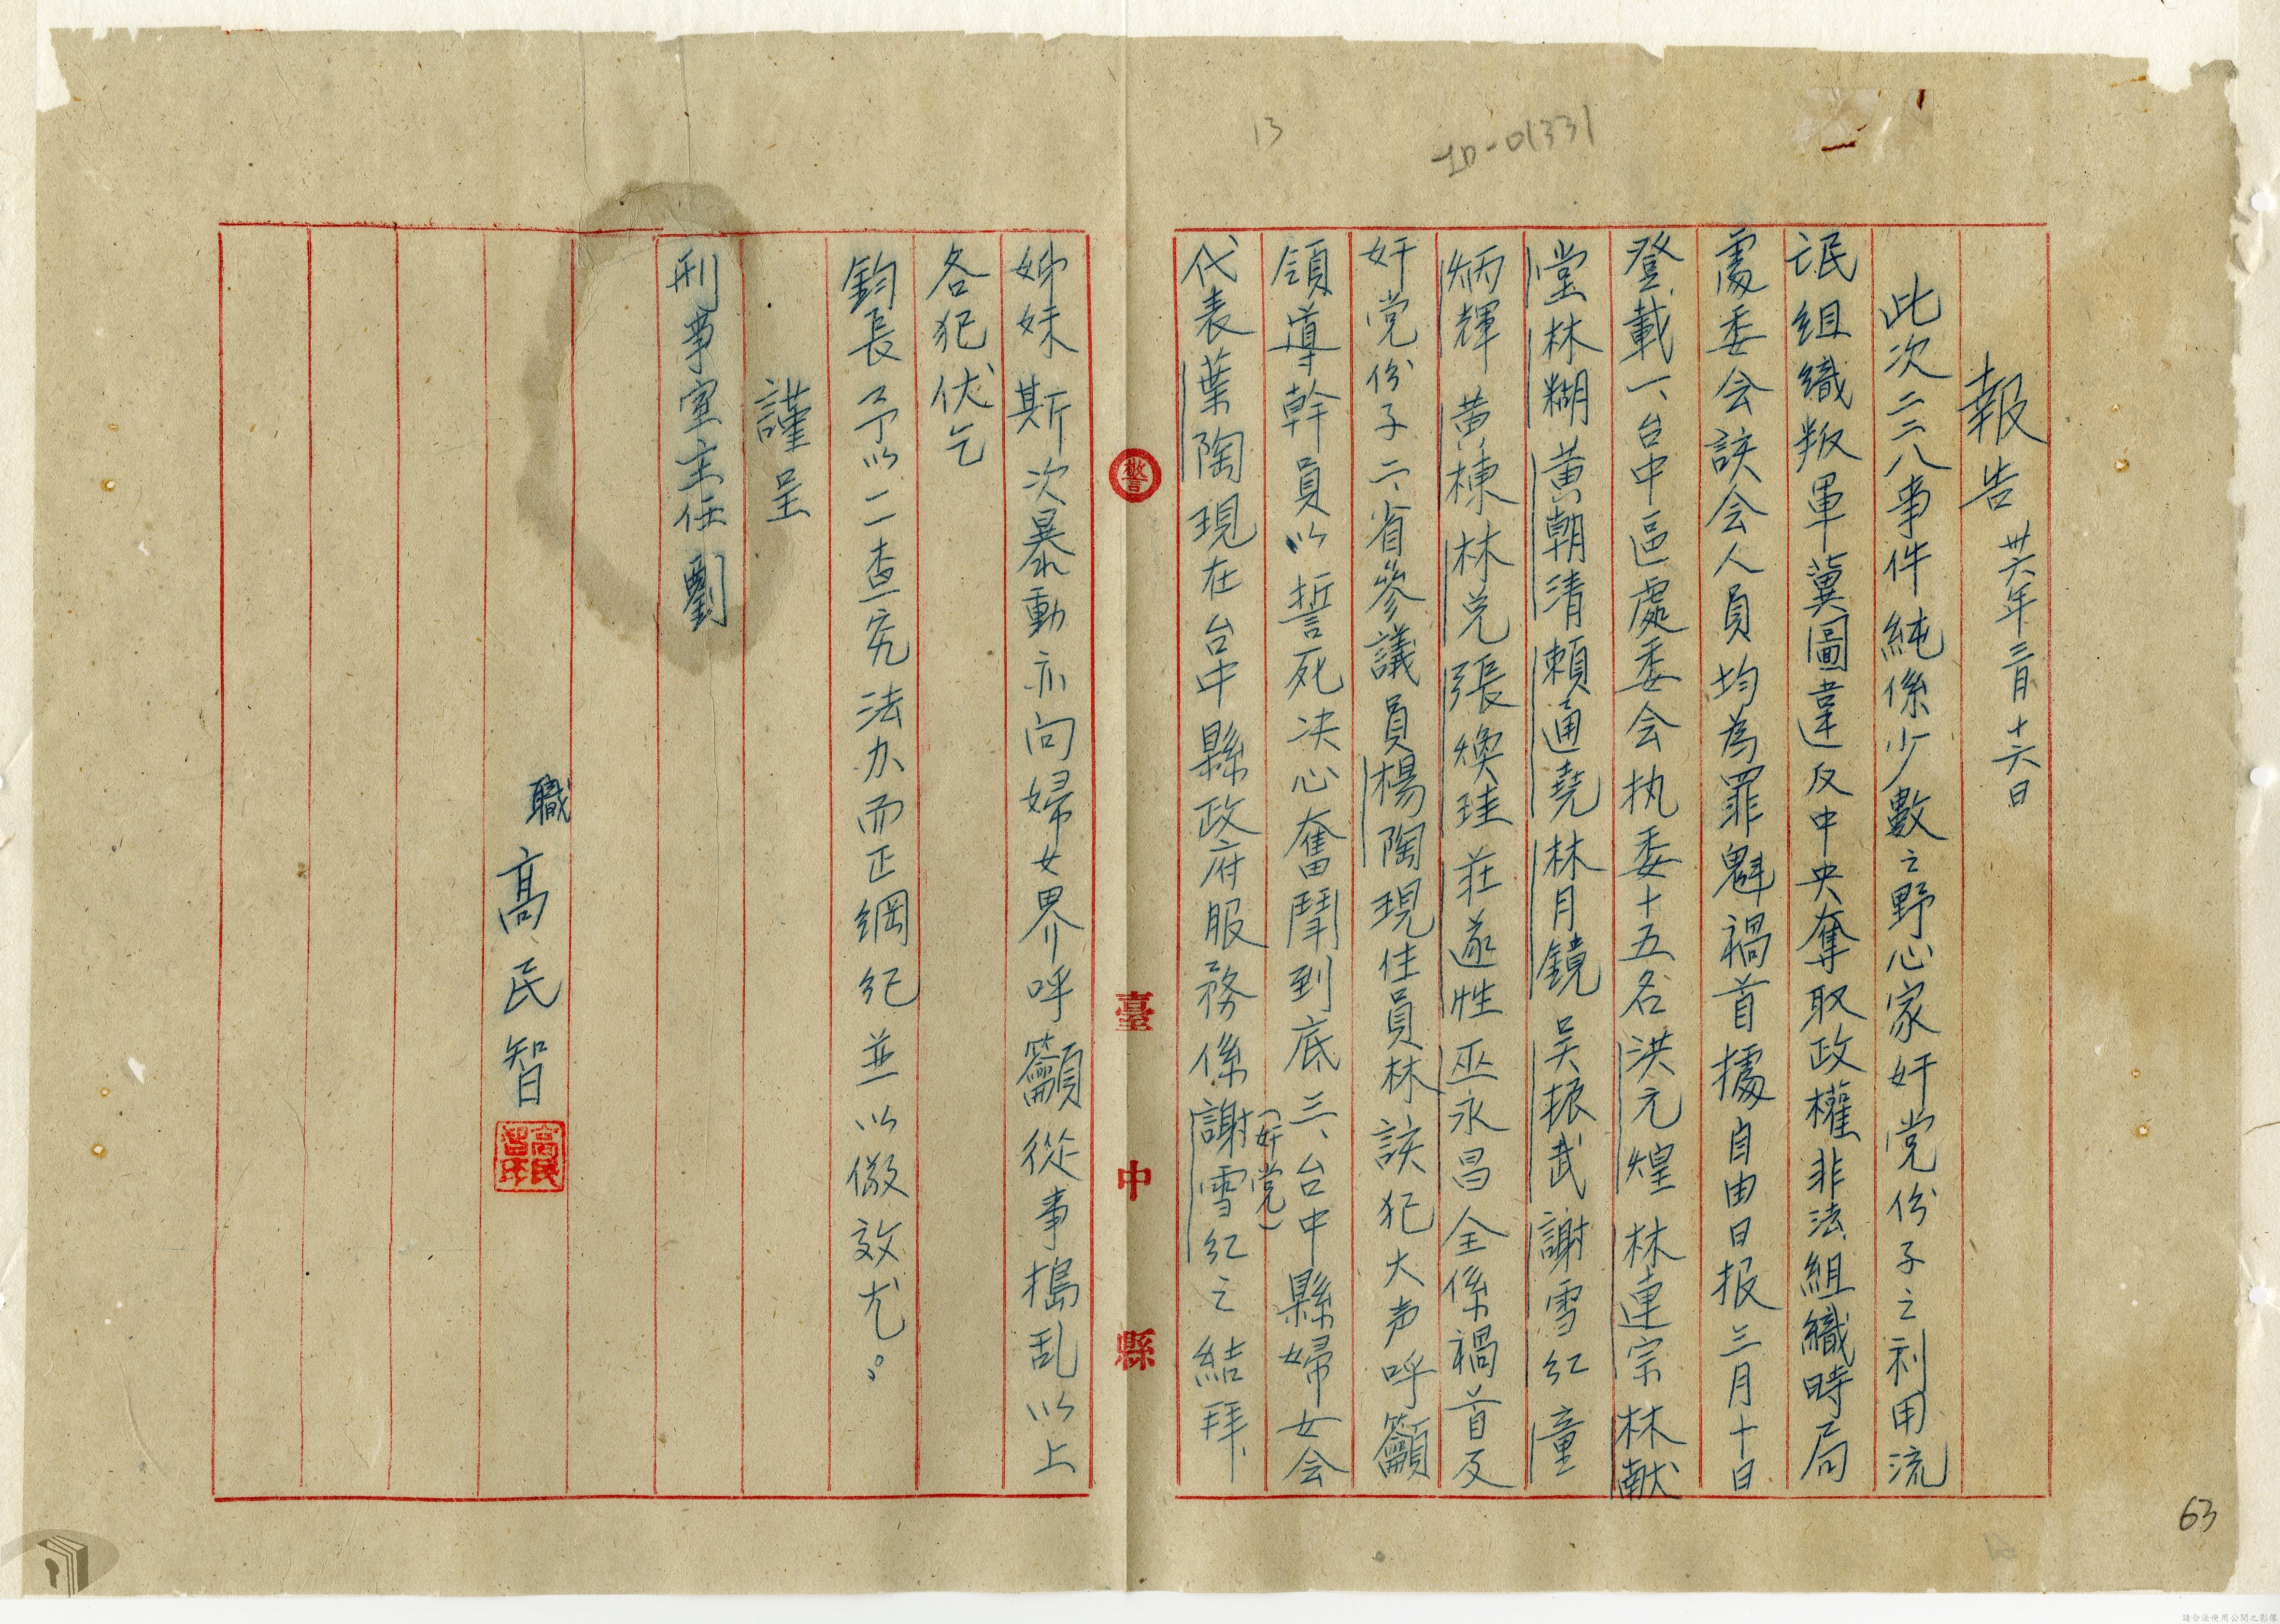 報告 卅六年三月十六日
此次二二八事件純係少數之野心家奸党份子之利用流
氓組織叛軍冀圖違反中央奪取政權非法組織時局
處委会該会人員均為罪魁禍首據自由日报三月十日
登載一、台中區處委会执委十五名洪元煌 林連宗 林献
堂 林糊 黃朝清 賴通堯 林月鏡 吴振武 謝雪紅 童
炳輝 黄棟 林兑 張煥珪 莊遂性 巫永昌全係禍首及
奸党份子二、省參議員楊陶現住員林該犯大声呼籲
領導幹員以誓死决心奮鬪到底三、台中縣婦女会
代表葉陶現在台中縣政府服務係謝雪紅(奸党)之結拜
姊妹斯次暴動亦向婦女界呼籲從事搗乱以上
各犯伏乞
鈞長予以一一查究法办而正綱紀並以儆效尤。
謹呈
刑事室主任劉
職 高民智
高民智
警
臺中縣
13
ID-01331
63
請合法使用公開之影像